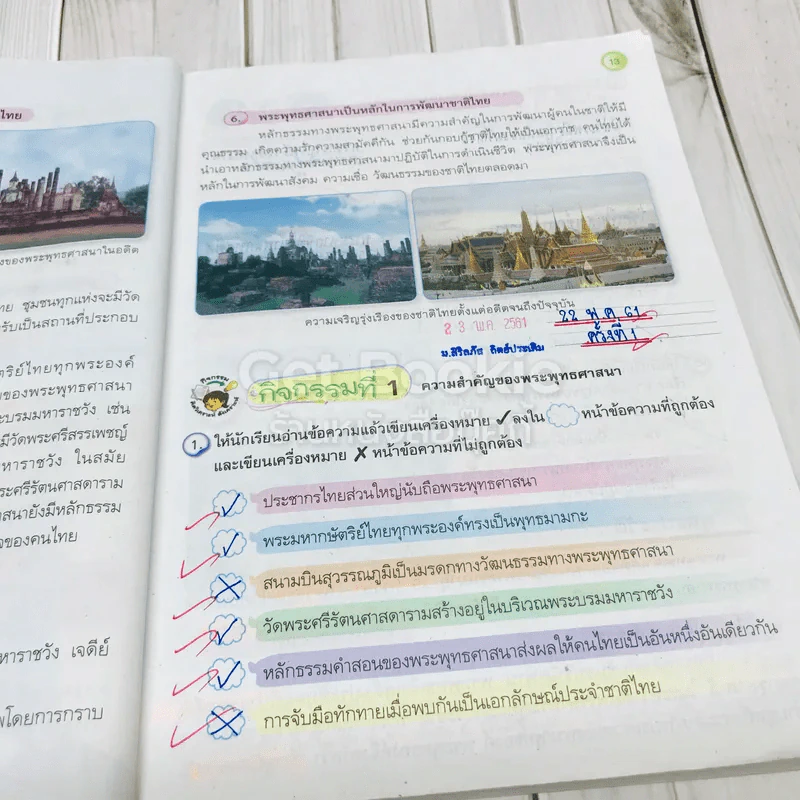 ไทย
ของพระพุทธศาสนาในอดีต
ไทย ชุมชนทุกแห่งจะมีวัด
รับเป็นสถานที่ประกอบ
ตริย์ไทยทุกพระองค์
ของพระพุทธศาสนา
ะบรมมหาราชวัง เช่น
มีวัดพระศรีสรรเพชญ์
หาราชวัง ในสมัย
ระศรีรัตนศาสดาราม
าสนายังมีหลักธรรม
ของคนไทย
หาราชวัง เจดีย์
พโดยการกราบ
13
6. พระพุทธศาสนาเป็นหลักในการพัฒนาชาติไทย
หลักธรรมทางพระพุทธศาสนามีความสำคัญในการพัฒนาผู้คนในชาติให้มี
คุณธรรม เกิดความรักความสามัคคีกัน ช่วยกันกอบกู้ชาติไทยให้เป็นเอกราช คนไทยได้
นำเอาหลักธรรมทางพระพุทธศาสนามาปฏิบัติในการดำเนินชีวิต พระพุทธศาสนาจึงเป็น
หลักในการพัฒนาสังคม ความเชื่อ วัฒนธรรมของชาติไทยตลอดมา
ความเจริญรุ่งเรืองของชาติไทยตั้งแต่อดีตจนถึงปัจจุบัน
23 พ.ค. 2561
22 พ.ค. 61
ครั้งที่ 1
Got Bookie
ร้านหนังสือเก่า
กิจกรรม
กิจกรรมที่ 1 ความสำคัญของพระพุทธศาสนา
1. ให้นักเรียนอ่านข้อความแล้วเขียนเครื่องหมาย ✓ ลงใน หน้าข้อความที่ถูกต้อง
และเขียนเครื่องหมาย ✗ หน้าข้อความที่ไม่ถูกต้อง
✓ ประชากรไทยส่วนใหญ่นับถือพระพุทธศาสนา
✓ พระมหากษัตริย์ไทยทุกพระองค์ทรงเป็นพุทธมามกะ
✗ สนามบินสุวรรณภูมิเป็นมรดกทางวัฒนธรรมทางพระพุทธศาสนา
✓ วัดพระศรีรัตนศาสดารามสร้างอยู่ในบริเวณพระบรมมหาราชวัง
✓ หลักธรรมคำสอนของพระพุทธศาสนาส่งผลให้คนไทยเป็นอันหนึ่งอันเดียวกัน
✗ การจับมือทักทายเมื่อพบกันเป็นเอกลักษณ์ประจำชาติไทย